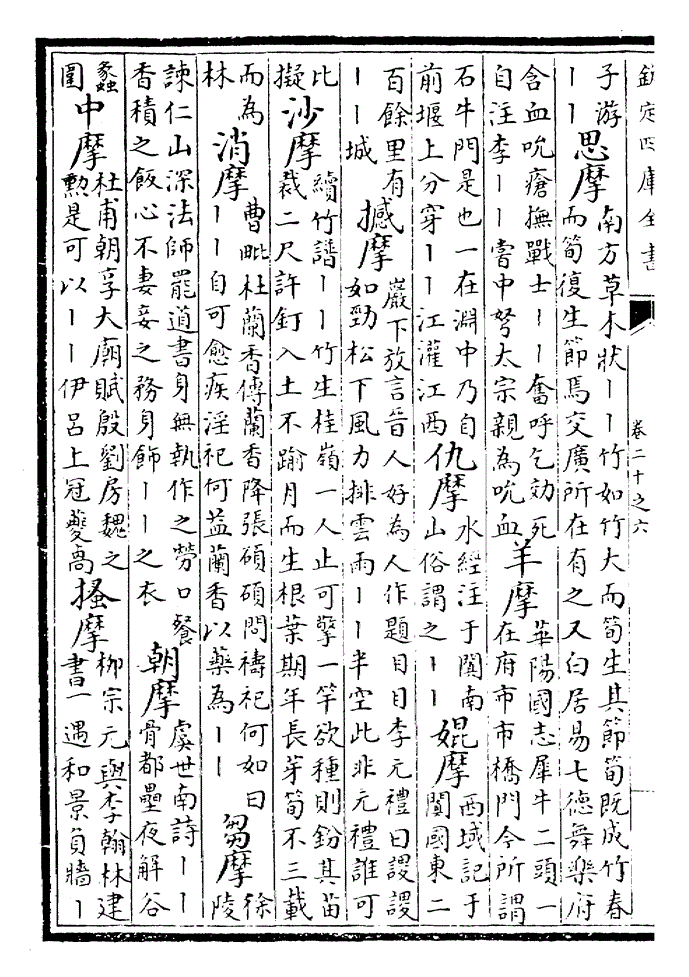 欽定四庫全書 卷二十之六
子游丨丨思摩南方草木狀丨丨竹如竹大而筍生其節筍既成竹春而筍復生節焉交廣所在有之又白居易七德舞樂府
含血吮瘡撫戰士丨丨奮呼乞効死自注李丨丨嘗中弩太宗親為吮血羊摩華陽國志犀牛二頭一在府市市橋門今所謂
石牛門是也一在淵中乃自前堰上分穿丨丨江灌江西仇摩水經注于闐南山俗謂之丨丨媲摩西域記于闐國東二
百餘里有丨丨城撼摩巖下放言晉人好為人作題目目李元禮曰謖謖如勁松下風力排雲雨丨丨半空此非元禮誰可
比擬沙摩續竹譜丨丨竹生桂嶺一人止可擎一竿欲種則鈔其苗裁二尺許釘入土不踰月而生根葉期年長芽筍不三載
而為林消摩曹毗杜蘭香傳蘭香降張碩碩問禱祀何如曰丨丨自可愈疾淫祀何益蘭香以藥為丨丨芻摩徐陵
諫仁山深法師罷道書身無執作之勞口餐香積之飯心不妻妾之務身飾丨丨之衣朝摩虞世南詩丨丨骨都壘夜解谷
蠡圍中摩杜甫朝享大廟賦殷劉房魏之勲是可以丨丨伊呂上冠夔卨搔摩柳宗元與李翰林建書一遇和景負牆丨